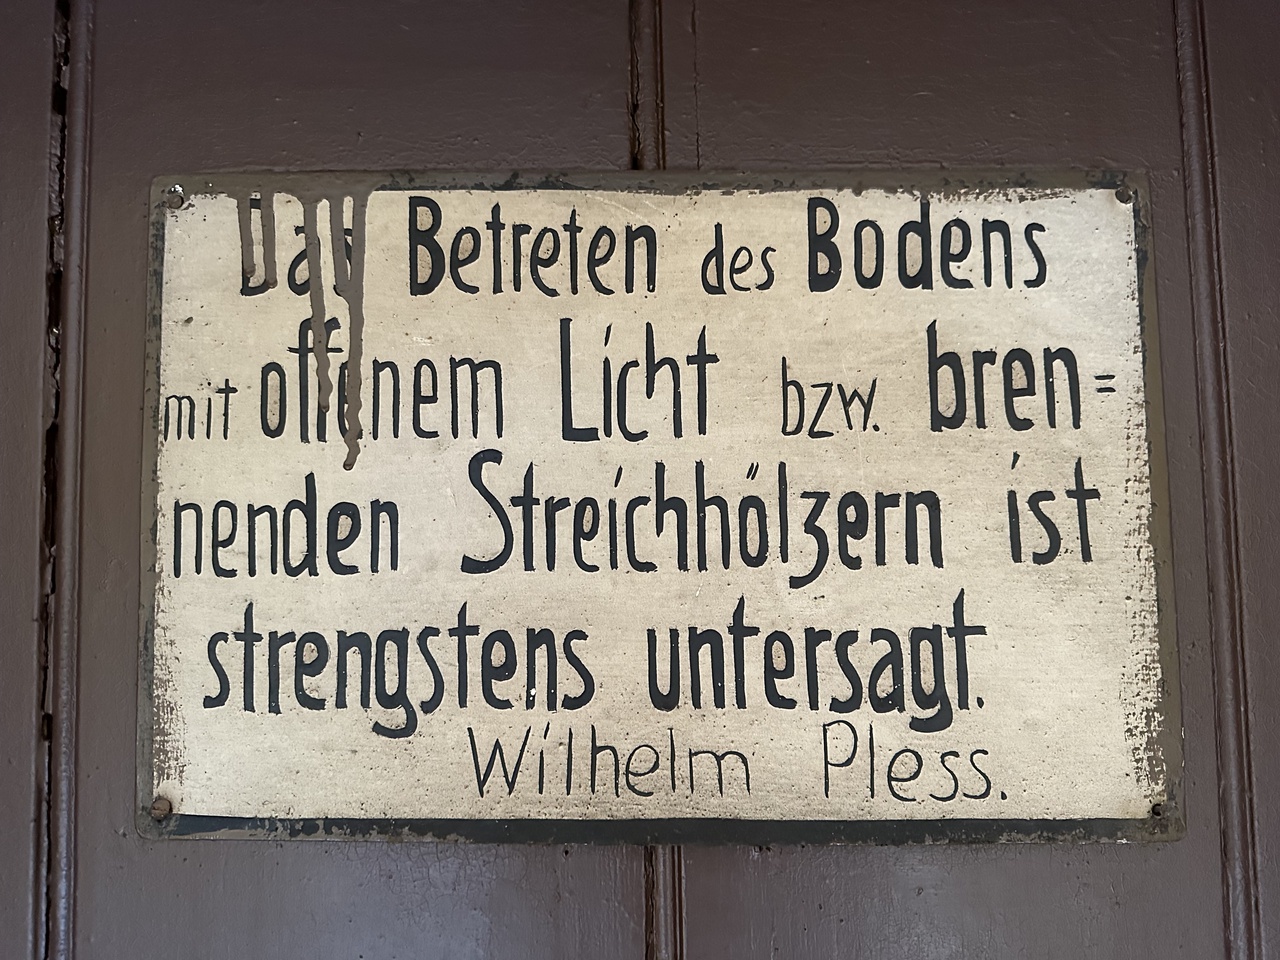 Das Betreten des Bodens
mit offenem Licht bzw. bren=
nenden Streichhölzern ist
strengstens untersagt.
Wilhelm Pless.